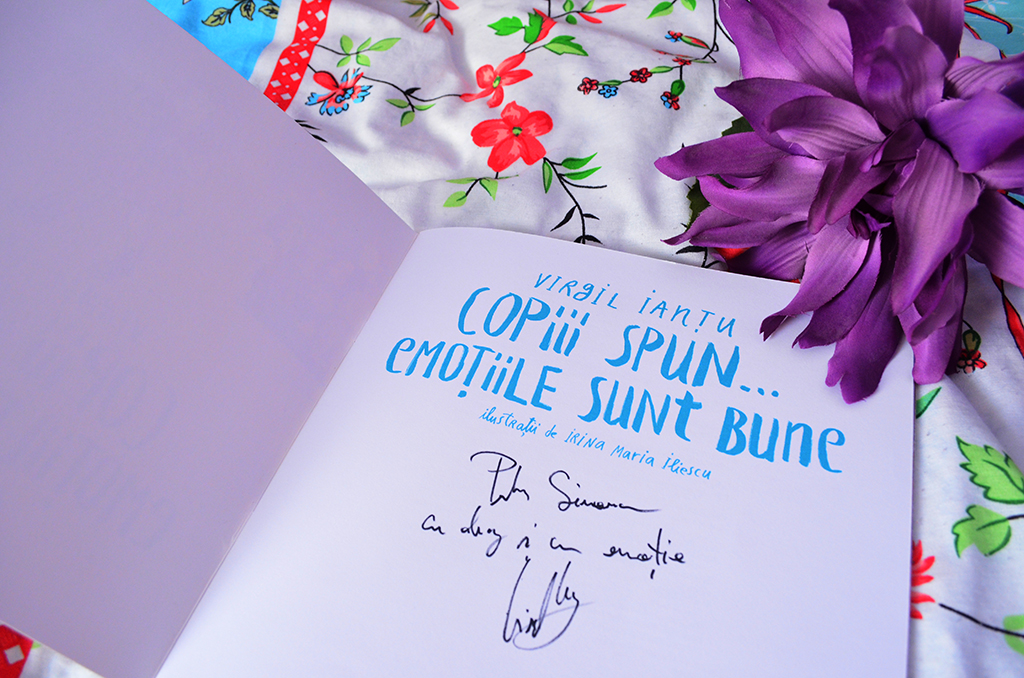 VIRGIL IANȚU
COPIII SPUN...
EMOȚIILE SUNT BUNE
ilustrații de IRINA Maria Iliescu
Simona
cu drag și cu emoție